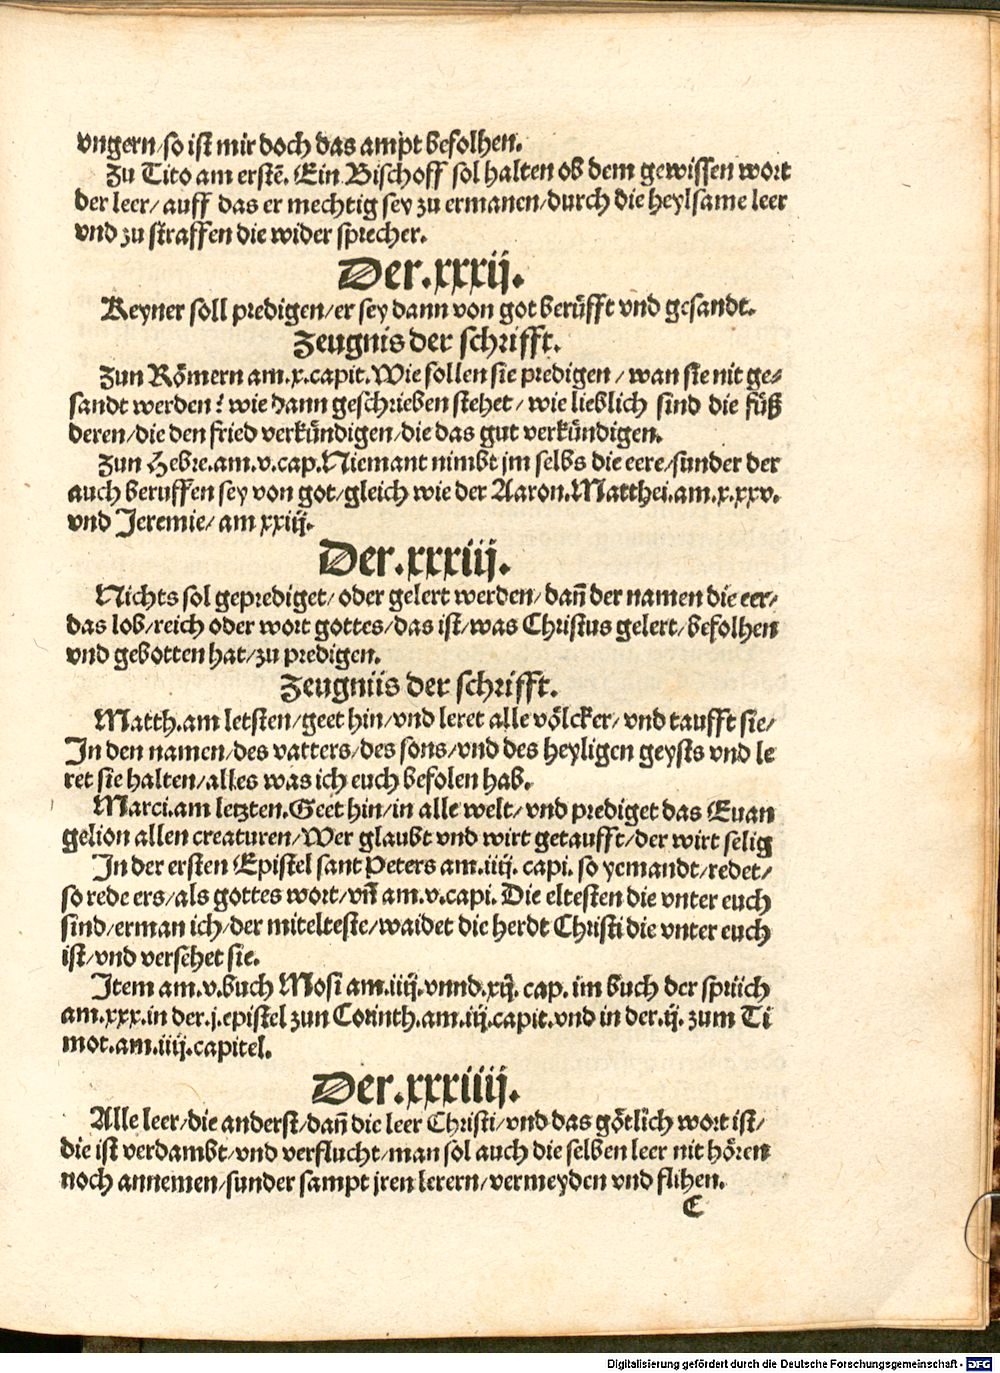 vngern/so ist mir doch das ampt befolhen.
Zu Tito am erstē. Ein Bischoff sol halten ob dem gewissen wort
der leer/ auff das er mechtig sey zu ermanen/durch die heylsame leer
vnd zu straffen die wider sprecher.
Der.xxxij.
Keyner soll predigen/er sey dann von got berüfft vnd gesandt.
Zeugnis der schrifft.
Zun Römern am.x.capit.Wie sollen sie predigen / wan sie nit ge⸗
sandt werden? wie dann geschrieben stehet/ wie lieblich sind die füß
deren/die den fried verkündigen/die das gut verkündigen.
Zun Hebre.am.v.cap.Niemant nimbt jm selbs die eere/sunder der
auch beruffen sey von got/gleich wie der Aaron.Matthei.am.x.xxv.
vnd Jeremie/ am xxiij.
Der.xxxiij.
Nichts sol geprediget/ oder gelert werden/ dañ der namen die eer/
das lob/reich oder wort gottes/das ist/was Christus gelert/befolhen
vnd gebotten hat/zu predigen.
Zeugniis der schrifft.
Matth.am letsten/geet hin/vnd leret alle völcker/ vnd taufft sie/
In den namen/des vatters/des sons/vnd des heyligen geysts vnd le
ret sie halten/alles was ich euch befolen hab.
Marci.am letzten.Geet hin/in alle welt/ vnd prediget das Euan
gelion allen creaturen/Wer glaubt vnd wirt getaufft/der wirt selig
In der ersten Epistel sant Peters am.iiij. capi. so yemandt/redet/
so rede ers/als gottes wort/vñ am.v.capi. Die eltesten die vnter euch
sind/erman ich/der mitelteste/waidet die herdt Christi die vnter euch
ist/vnd versehet sie.
Item am.v.buch Mosi am.iiij.vnnd.xij. cap. im buch der sprüch
am.xxx.in der.j.epistel zun Corinth.am.iij.capit.vnd in der.ij. zum Ti
mot.am.iiij.capitel.
Der.xxxiiij.
Alle leer/die anderst/dañ die leer Christi/vnd das götlich wort ist/
die ist verdambt/vnd verflucht/man sol auch die selben leer nit hören
noch annemen/sunder sampt jren lerern/vermeyden vnd flihen.
C
Digitalisierung gefördert durch die Deutsche Forschungsgemeinschaft - DFG